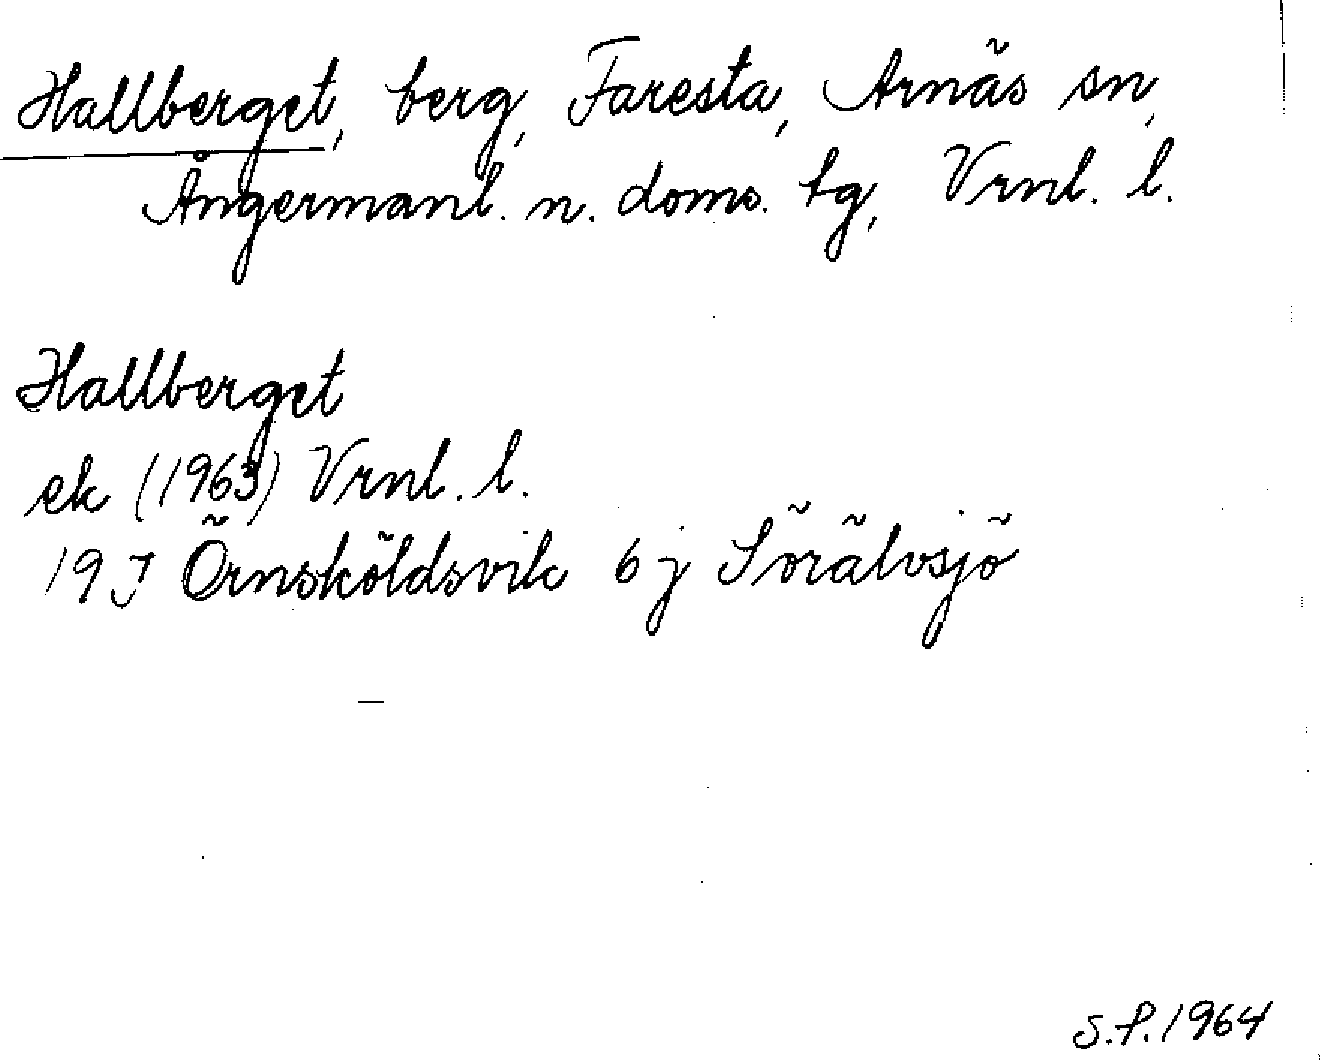 Hallberget, berg, Faresta, Arnäs sn,
Ångermanl. n. doms. tg, Vrnl. l.
Hallberget
ek (1963) Vrnl. l.
19 J Örnsköldsvik 6 j Sörälvsjö
S.P. 1964